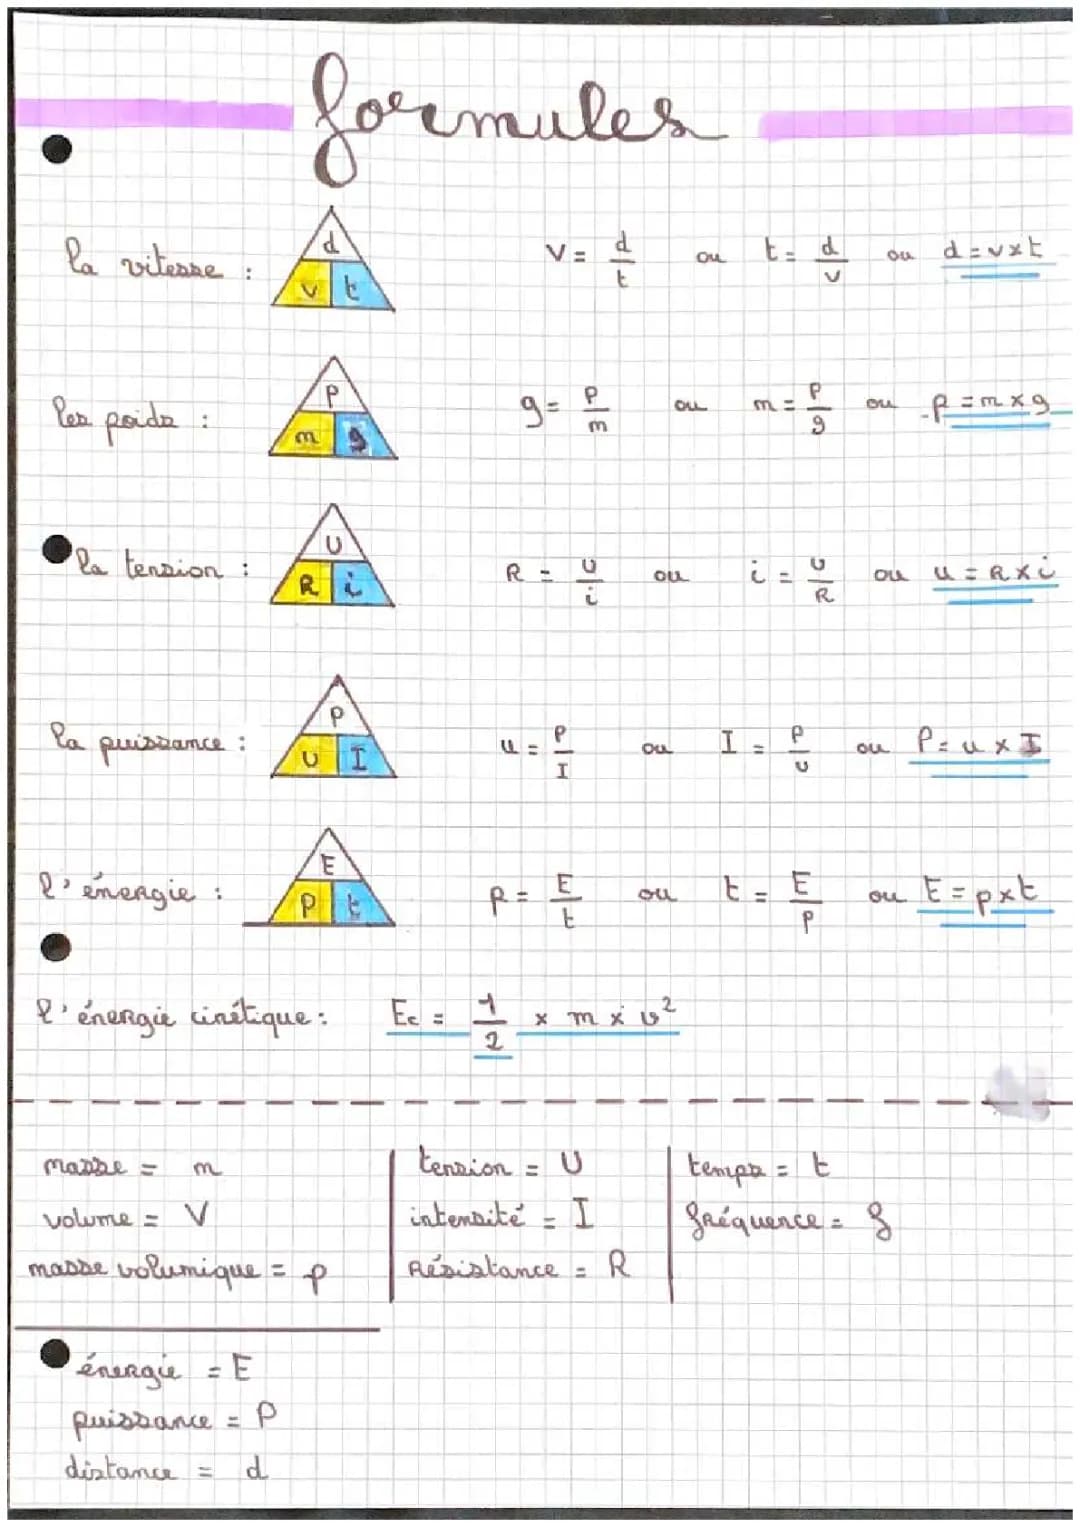 formules
la vitesse : d v t V = d/t ou t = d/v ou d = v x t
les poids : P m g g = P/m ou m = P/g ou p = m x g
la tension : U R i R = U/i ou i = U/R ou u = R x i
la puissance : P U I u = P/I ou I = P/U ou P = u x I
l'énergie : E P t p = E/t ou t = E/p ou E = p x t
l'énergie cinétique : Ec = 1/2 x m x v²
masse = m
volume = V
masse volumique = p
tension = U
intensité = I
Résistance = R
temps = t
fréquence = f
énergie = E
puissance = P
distance = d